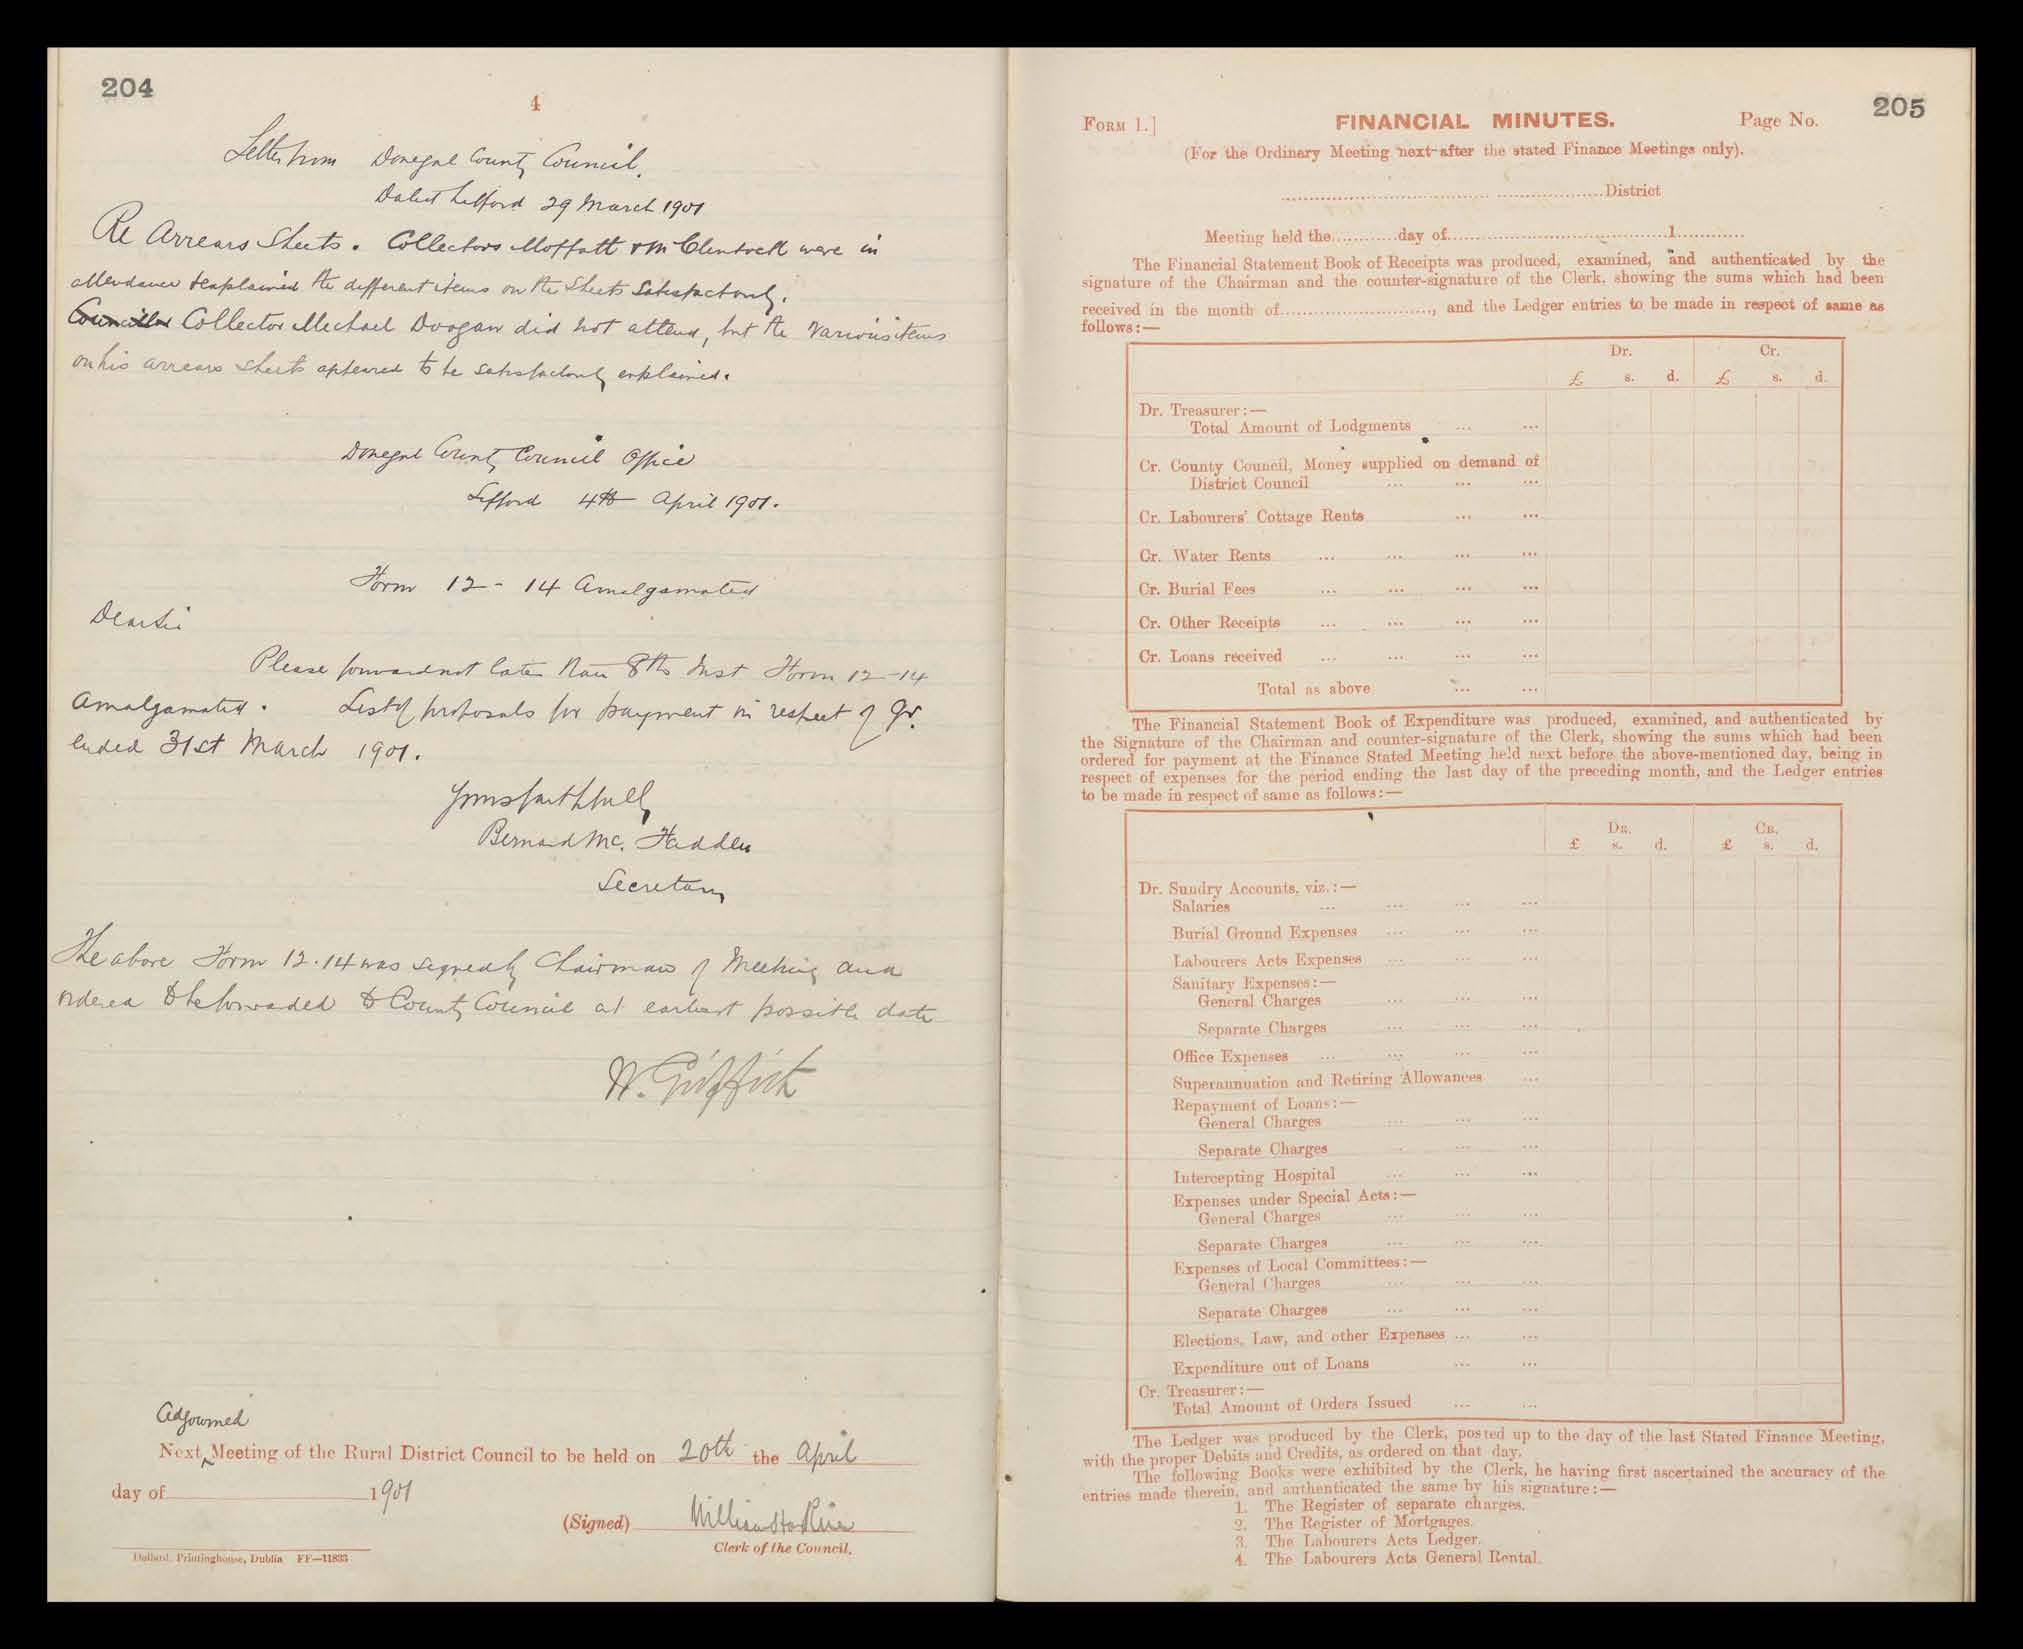 204
4
Letter from Donegal County Council.
Dated Lifford 29 March 1901
Re Arrears Sheets. Collectors Moffatt & were in
attendance & explained the different items on the Sheets Satisfactorily.
Councillor Collector Michael Doogan did not attend, but the various items
on his arrears sheets appeared to be satisfactorily explained.
Donegal County Council Office
Lifford 4th April 1901.
Form 12 - 14 Amalgamated
Dear Sir
Please forward not later than 8th Inst Form 12-14
Amalgamated. List of proposals for payment in respect of qr.
ended 31st March 1901.
Yours faithfully
Bernard Mc. Fadden
Secretary
The above Form 12.14 was signed by Chairman of Meeting and
ordered to be forwarded to County Council at earliest possible date
W. Griffith
Adjourned
Next ^ Meeting of the Rural District Council to be held on 20th the April
day of 1901
(Signed) William
Clerk of the Council.
Dollard, Printinghouse, Dublin FF—11833
205
FORM 1.] FINANCIAL MINUTES. Page No.
(For the Ordinary Meeting next after the stated Finance Meetings only).
District
Meeting held the............day of..........................................1............
The Financial Statement Book of Receipts was produced, examined, and authenticated by the
signature of the Chairman and the counter-signature of the Clerk, showing the sums which had been
received in the month of............................, and the Ledger entries to be made in respect of same as
follows:—
Dr. Cr.
£ s. d. £ s. d.
Dr. Treasurer:—
Total Amount of Lodgments ... ...
Cr. County Council, Money supplied on demand of
District Council ... ... ...
Cr. Labourers' Cottage Rents ... ...
Cr. Water Rents ... ... ... ...
Cr. Burial Fees ... ... ... ...
Cr. Other Receipts ... ... ... ...
Cr. Loans received ... ... ... ...
Total as above ... ...
The Financial Statement Book of Expenditure was produced, examined, and authenticated by
the Signature of the Chairman and counter-signature of the Clerk, showing the sums which had been
ordered for payment at the Finance Stated Meeting held next before the above-mentioned day, being in
respect of expenses for the period ending the last day of the preceding month, and the Ledger entries
to be made in respect of same as follows:—
DR. CR.
£ s. d. £ s. d.
Dr. Sundry Accounts, viz.:—
Salaries ... ... ... ...
Burial Ground Expenses ... ... ...
Labourers Acts Expenses ... ... ...
Sanitary Expenses:—
General Charges ... ... ...
Separate Charges ... ... ...
Office Expenses ... ... ... ...
Superannuation and Retiring Allowances ...
Repayment of Loans:—
General Charges ... ... ...
Separate Charges ... ... ...
Intercepting Hospital ... ... ...
Expenses under Special Acts:—
General Charges ... ... ...
Separate Charges ... ... ...
Expenses of Local Committees:—
General Charges ... ... ...
Separate Charges ... ... ...
Elections, Law, and other Expenses ... ...
Expenditure out of Loans ... ...
Cr. Treasurer:—
Total Amount of Orders Issued ... ...
The Ledger was produced by the Clerk, posted up to the day of the last Stated Finance Meeting,
with the proper Debits and Credits, as ordered on that day.
The following Books were exhibited by the Clerk, he having first ascertained the accuracy of the
entries made therein, and authenticated the same by his signature:—
1. The Register of separate charges.
2. The Register of Mortgages.
3. The Labourers Acts Ledger.
4. The Labourers Acts General Rental.